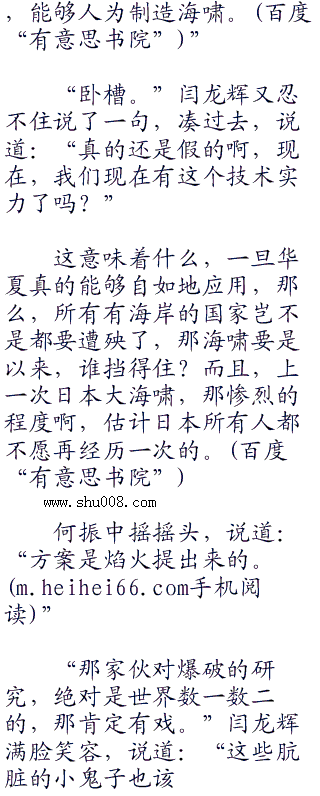 ，能够人为制造海啸。(百度
“有意思书院”)”
“卧槽。”闫龙辉又忍
不住说了一句，凑过去，说
道：“真的还是假的啊，现
在，我们现在有这个技术实
力了吗？”
这意味着什么，一旦华
夏真的能够自如地应用，那
么，所有有海岸的国家岂不
是都要遭殃了，那海啸要是
以来，谁挡得住？而且，上
一次日本大海啸，那惨烈的
程度啊，估计日本所有人都
不愿再经历一次的。(百度
“有意思书院”)
www.shu008.com
何振中摇摇头，说道：
“方案是焰火提出来的。
(m.heihei66.com手机阅
读)”
“那家伙对爆破的研
究，绝对是世界数一数二
的，那肯定有戏。”闫龙辉
满脸笑容，说道：“这些肮
脏的小鬼子也该